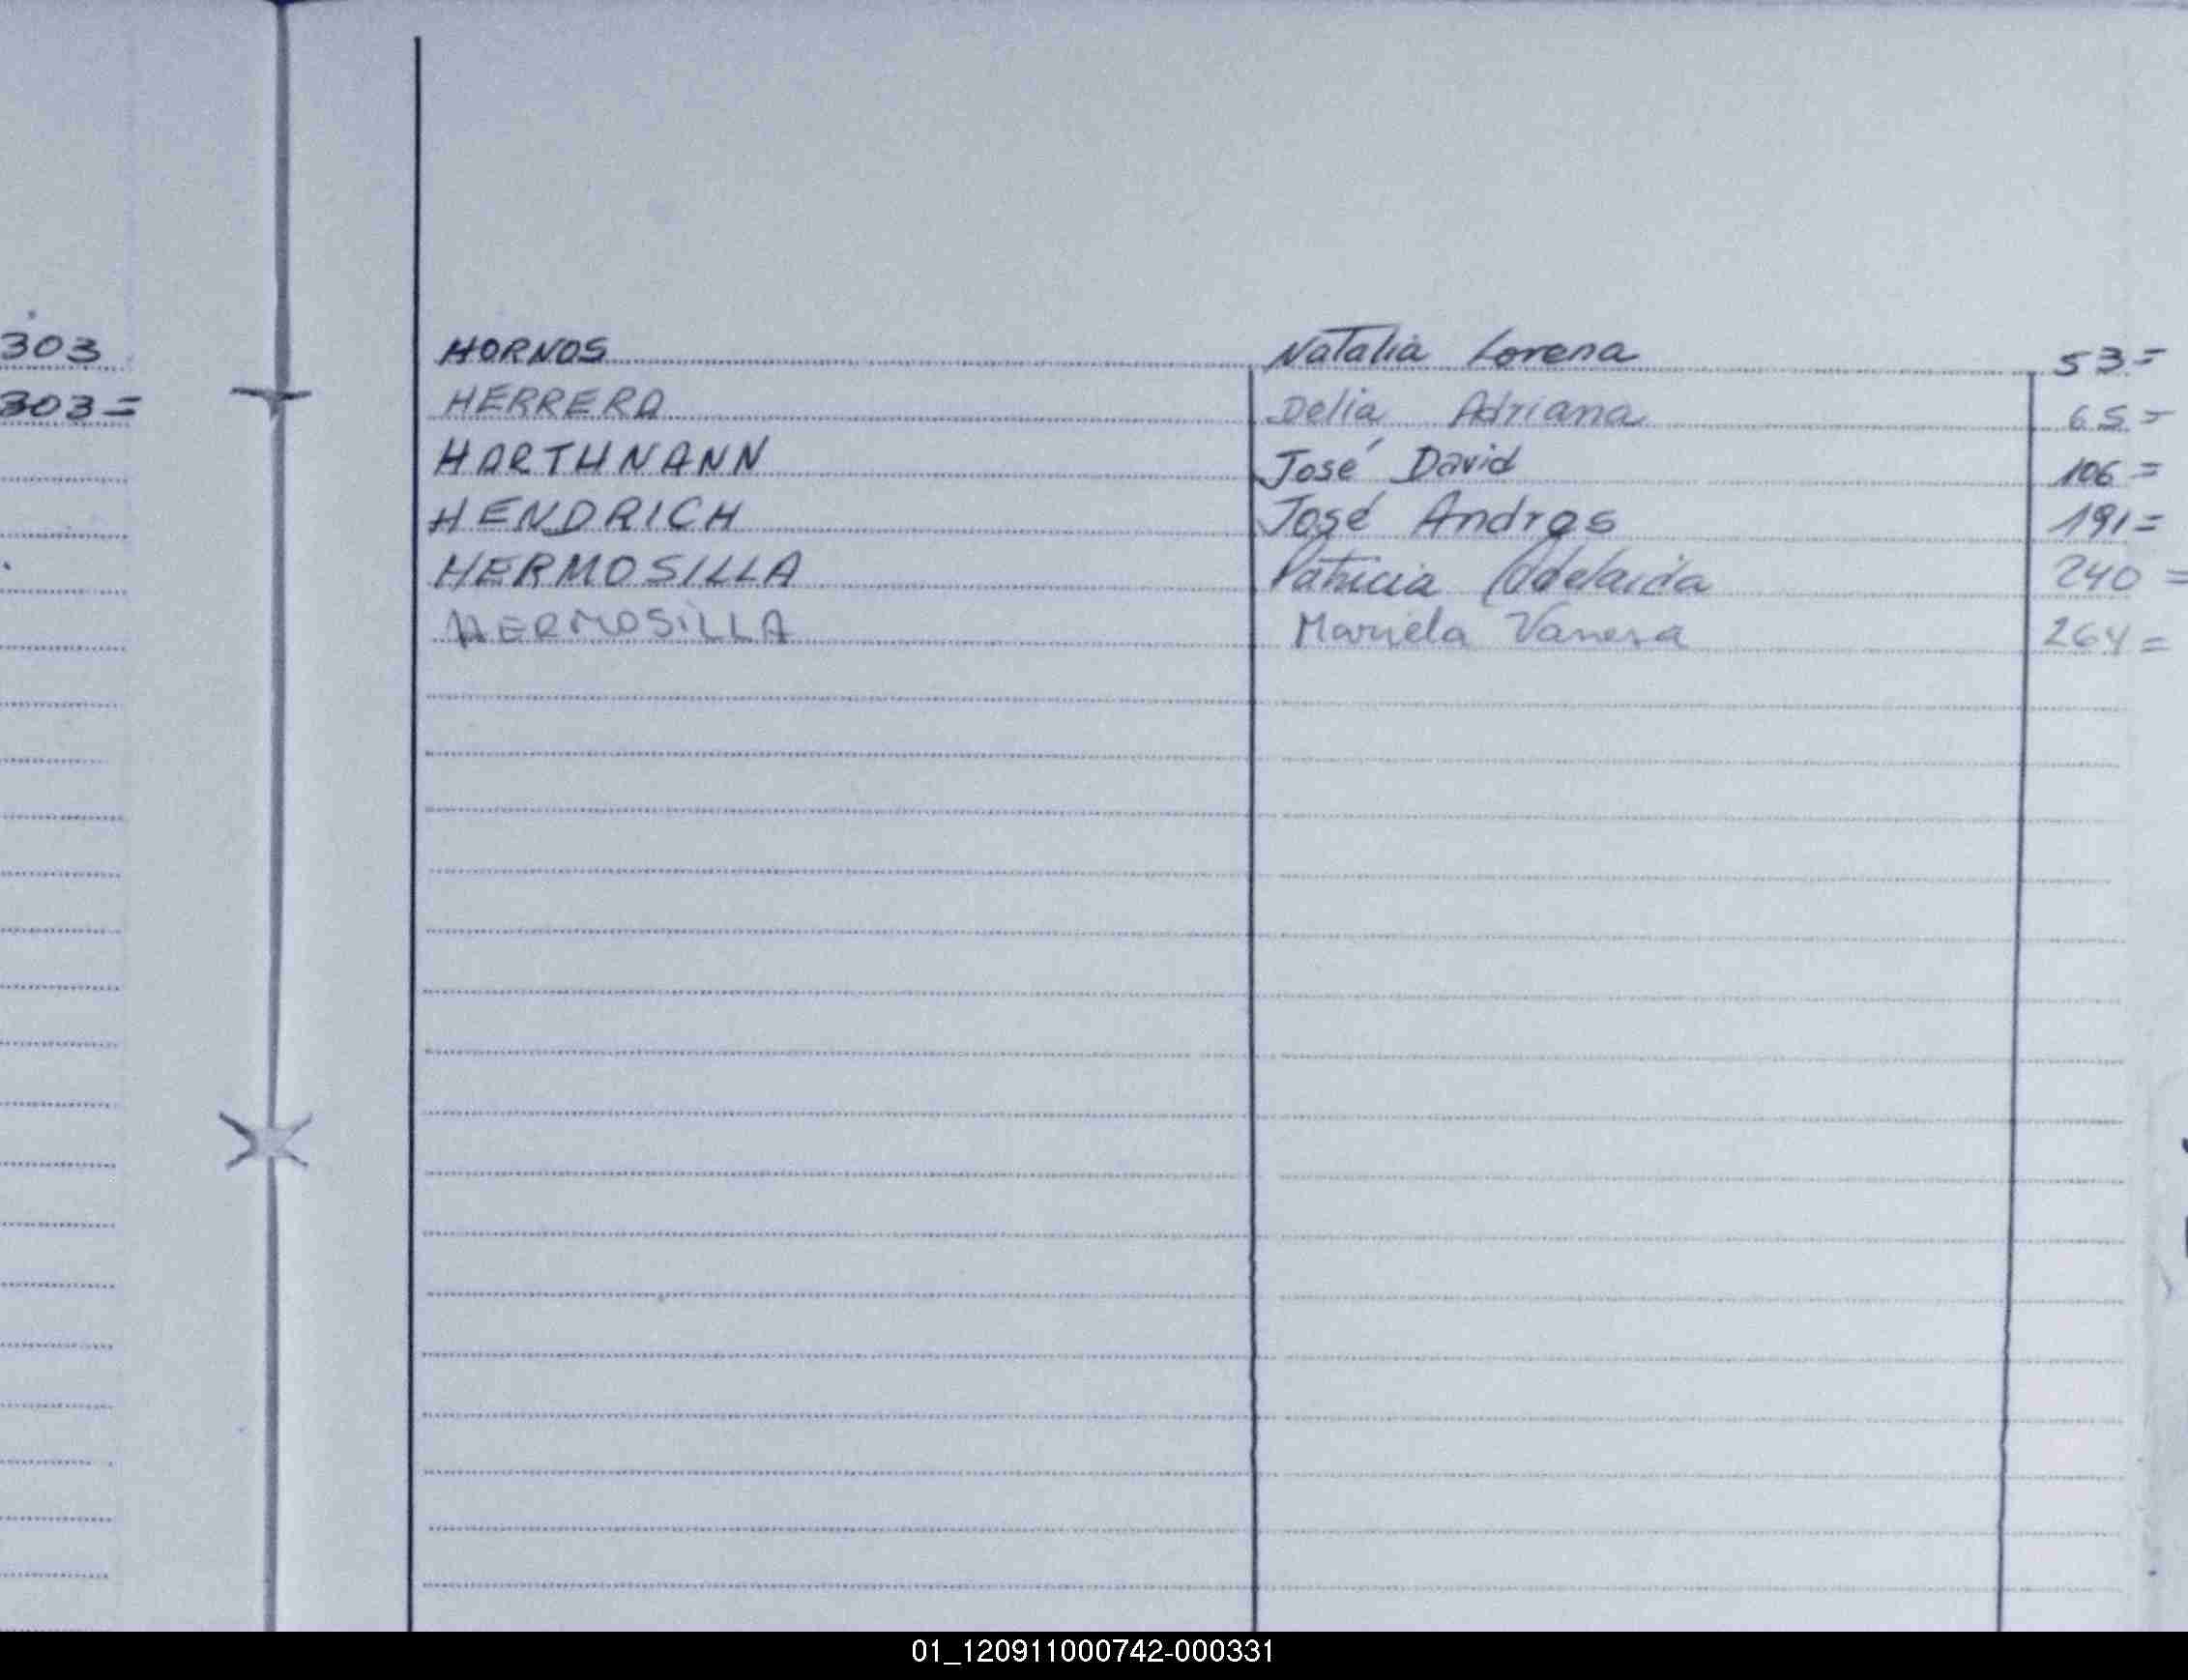 303
303=
HORNOS Natalia Lorena 53=
HERRERA Delia Adriana 65=
HARTHNANN José David 106=
HENDRICH José Andres 191=
HERMOSILLA Patricia Adelaida 240=
HERMOSILLA Mariela Vanesa 264=
01_120911000742-000331